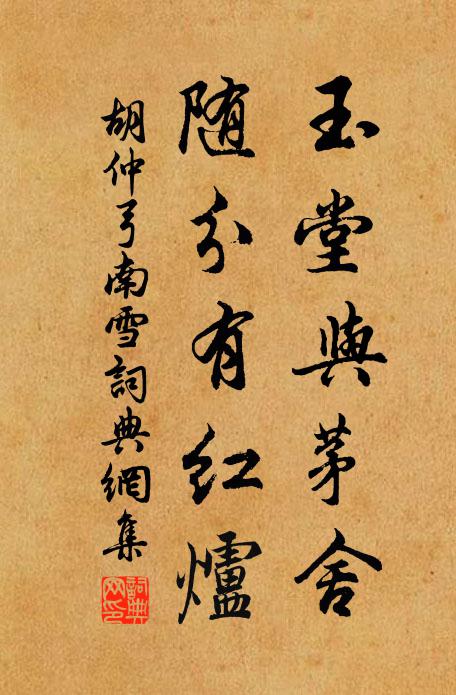 玉堂與茅舍
随分有红爐
胡仲弓南雪詞典網集
詞典网印